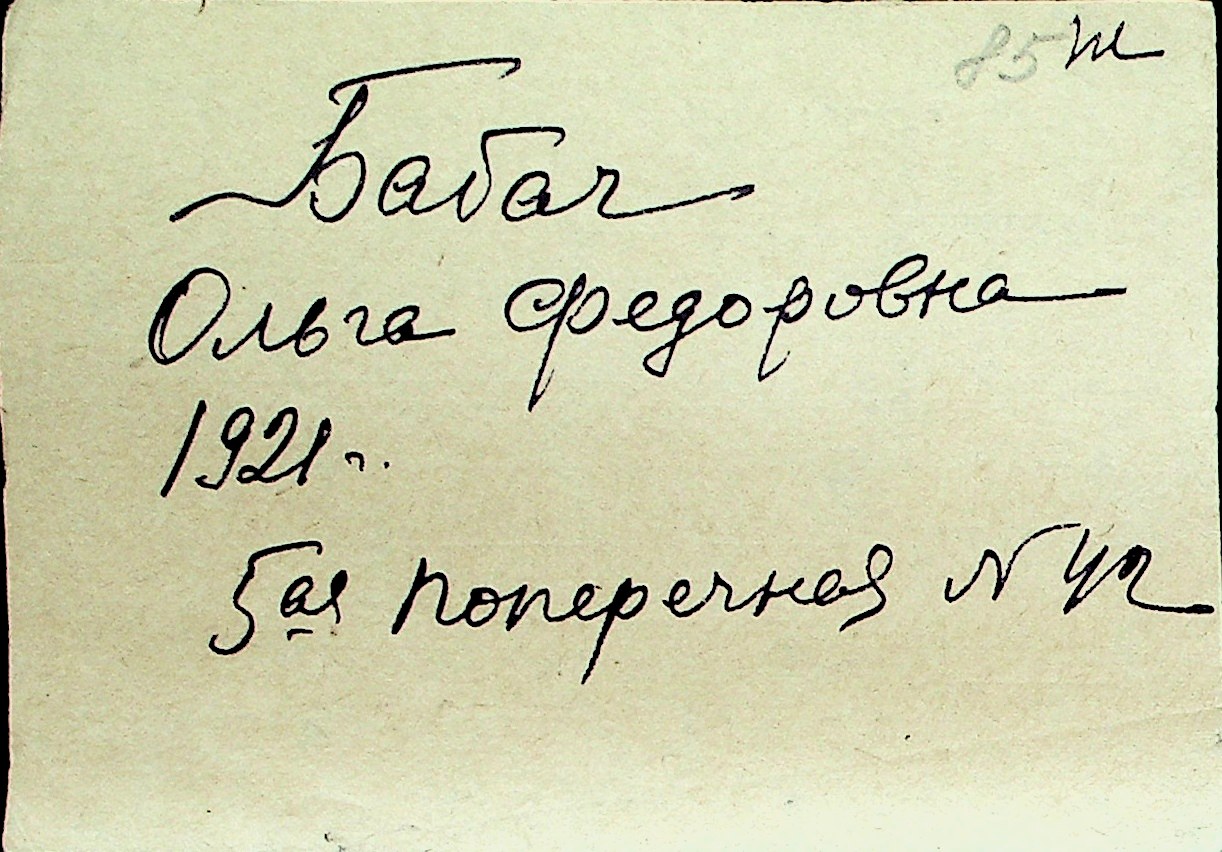 85 т
Бабач
Ольга Федоровна
1921 г.
5ая Поперечная N 42